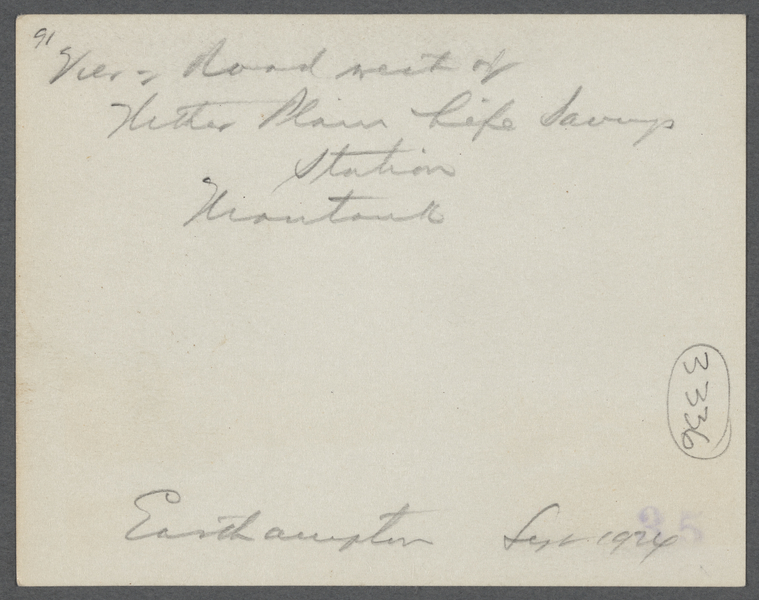 91
View of Road west of
Hither Plain Life Saving
Station
Montauk
3336
Easthampton Sept 1924
35